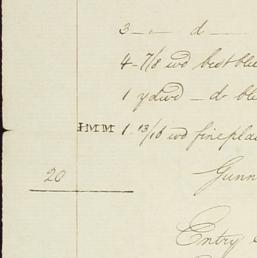 3 — — d —
4 - 7/8 wd best blu
1 ydwd — do blu
HMM 1 13/16 wd fine pla
20 Gunn
Entry